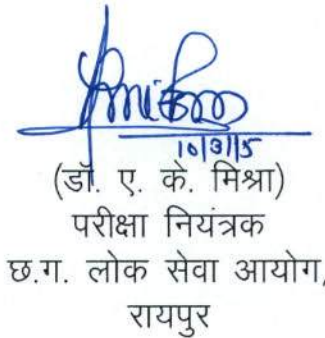 10/3/15
(डॉ. ए. के. मिश्रा)
परीक्षा नियंत्रक
छ.ग. लोक सेवा आयोग,
रायपुर